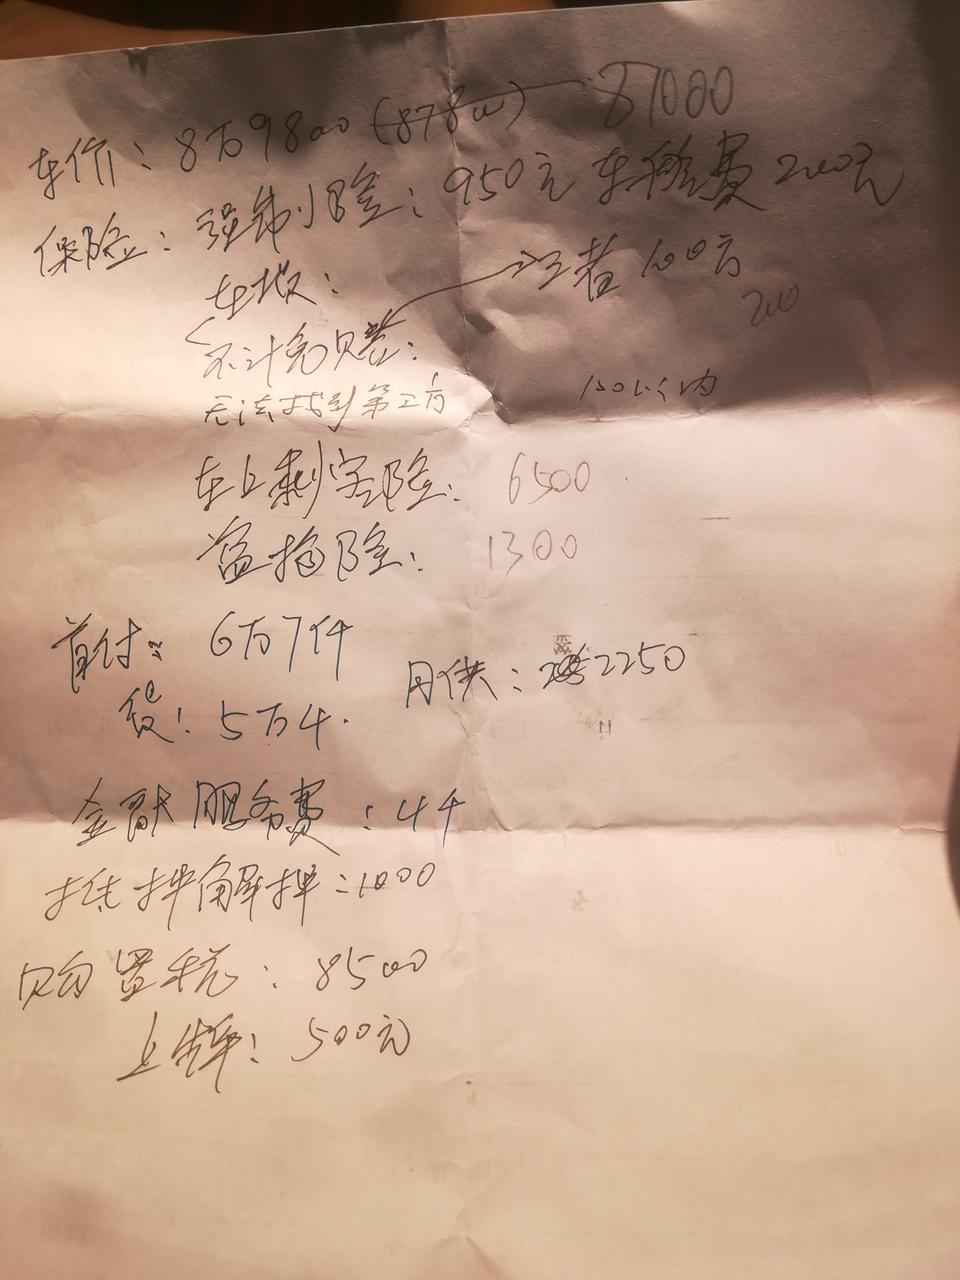 车价：8万9800（878w）— 87000
保险：强制险：950元 车船费 200元
车损： 三者100万
200
不计免赔：
无法找到第三方 100以内
车上乘客险：6500
盗抢险：1300
首付： 6万7仟
月供： 2250
贷：5万4.
金融服务费：4千
抵押解押：1000
购置税：8500
上牌：500元